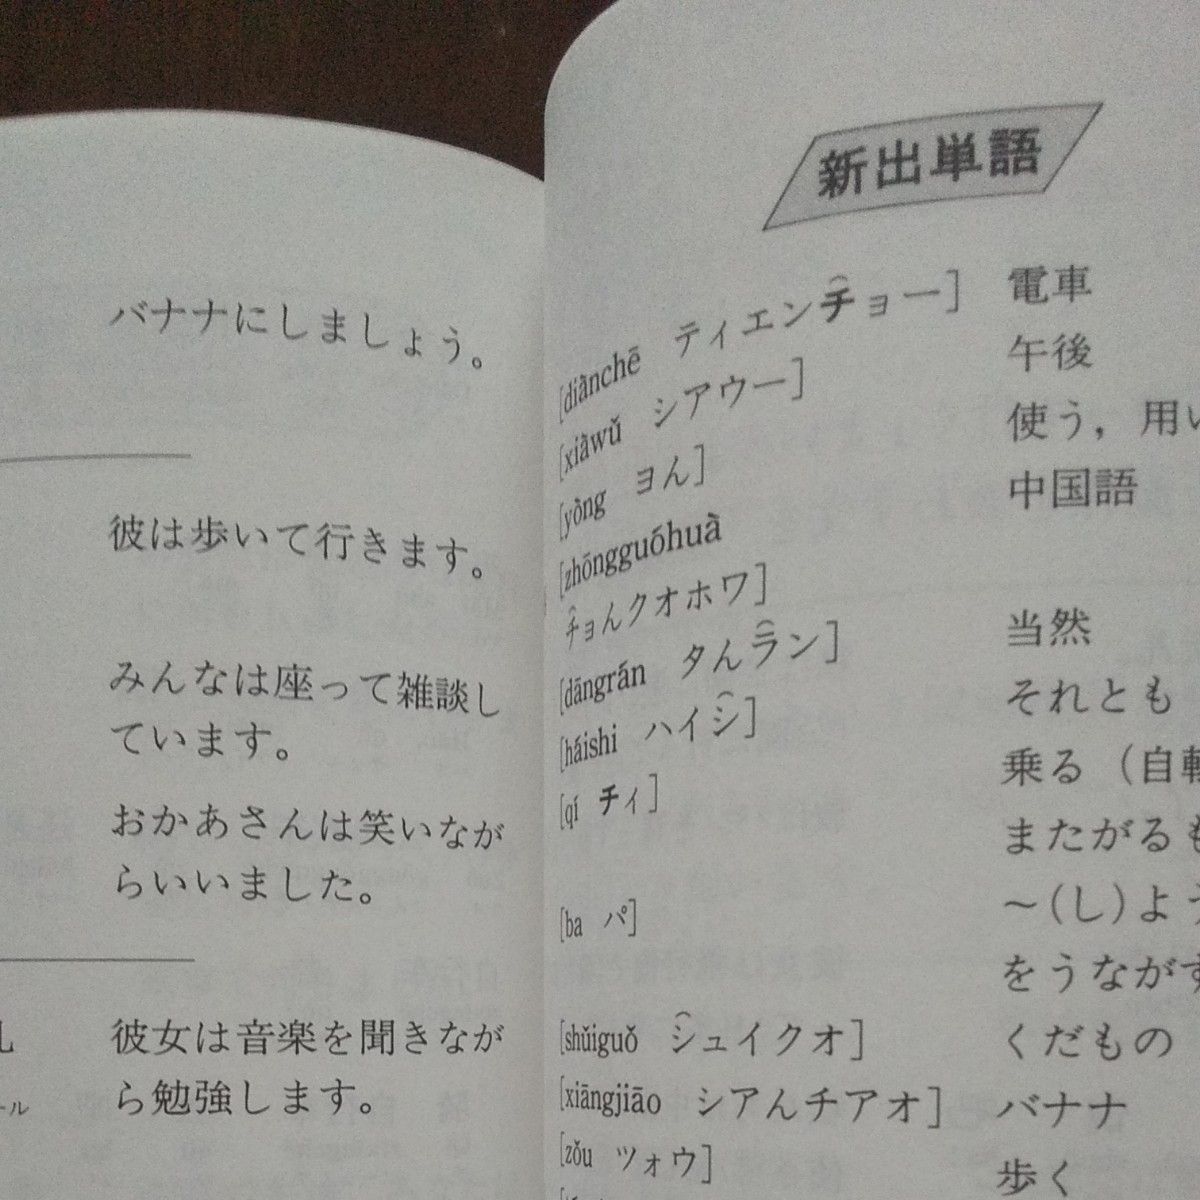 バナナにしましょう。
彼は歩いて行きます。
みんなは座って雑談し
ています。
おかあさんは笑いなが
らいいました。
彼女は音楽を聞きなが
ら勉強します。
ール
新出単語
[diànchē ティエンチョー] 電車
[xiàwǔ シアウー] 午後
[yòng ヨん] 使う，用い
[zhōngguóhuà 中国語
チョんクオホワ]
[dāngrán タんラン] 当然
[háishi ハイシ] それとも
[qí チィ] 乗る（自転
またがるも
[ba パ] ～(し)よう
をうながす
[shuǐguǒ シュイクオ] くだもの
[xiāngjiāo シアんチアオ] バナナ
[zǒu ツォウ] 歩く